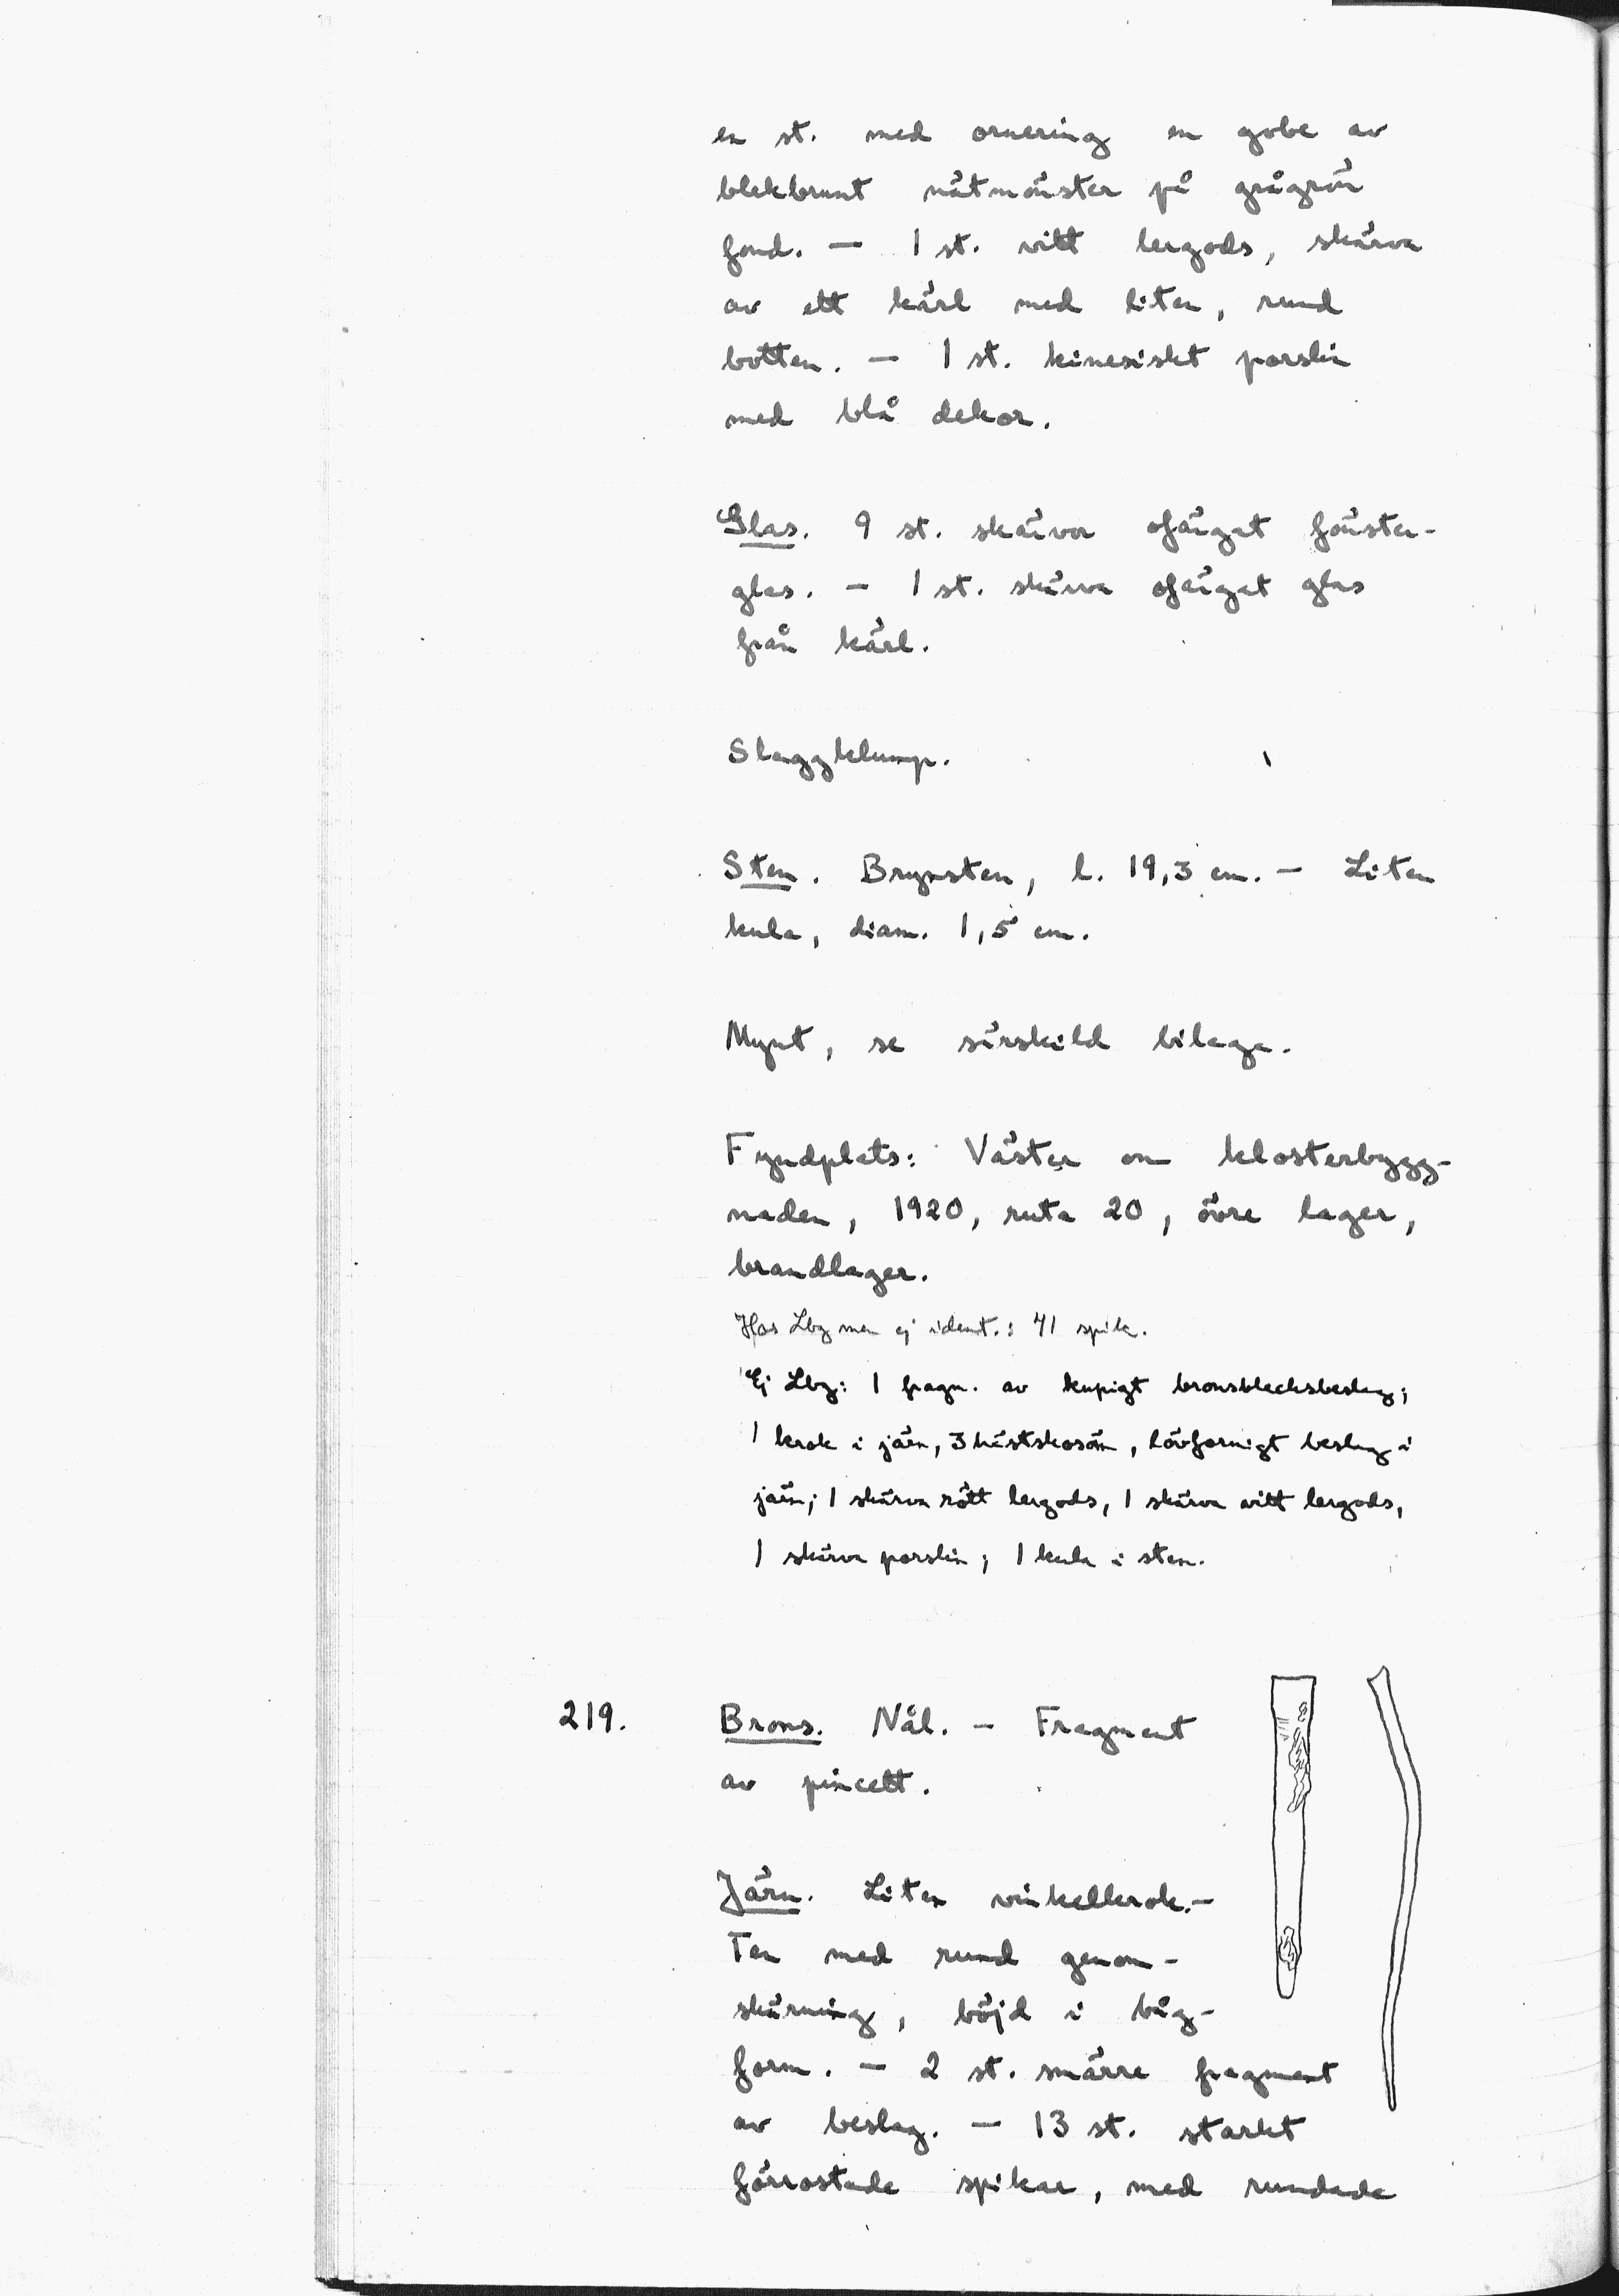 en st. med ornering en gobe av
blekbrunt nätmönster på grågrön
fond. — 1 st. vitt lergods, skärva
av ett kärl med liten, rund
botten. — 1 st. kinesiskt porslin
med blå dekor.
Glas. 9 st. skärvor ofärgat fönster-
glas. — 1 st. skärva ofärgat glas
från kärl.
Slaggklump.
Sten. Brynsten, l. 19,3 cm. — Liten
kula, diam. 1,5 cm.
Mynt, se särskild bilaga.
Fyndplats: Väster om klosterbygg-
naden, 1920, ruta 20, övre lager,
brandlager.
Hos Lbg men ej ident.: 41 spik.
Ej Lbg: 1 fragm. av kupigt bronsblecksbeslag;
1 krok i järn, 3 hästskosöm, lövformigt beslag i
järn; 1 skärva rött lergods, 1 skärva vitt lergods,
1 skärva porslin; 1 kula i sten.
219. Brons. Nål. — Fragment
av pincett.
Järn. Liten vinkelkrok. —
Ten med rund genom-
skärning, böjd i båg-
form. — 2 st. smärre fragment
av beslag. — 13 st. starkt
förrostade spikar, med rundade